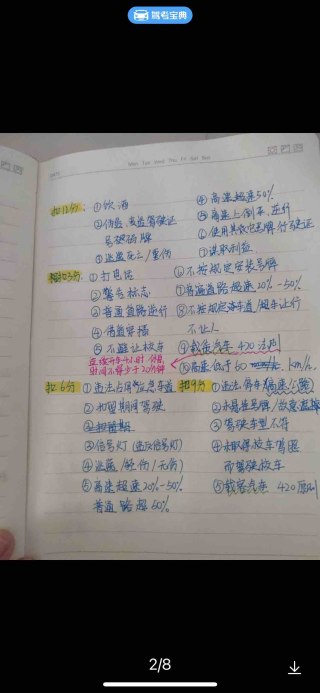 驾考宝典
Mon Tue Wed Thu Fri Sat Sun
扣12分: ①饮酒
②伪造、变造驾驶证
号牌
③逃逸死亡/重伤
④高速超速50%
⑤高速上倒车、逆行
⑥使用其他号牌、行驶证
⑦谋取利益
扣3分: ①打电话
②警告标志
③普通道路逆行
④借道穿插
⑤不避让校车
连续开车4小时,休息
时间不得少于20分钟
⑥不按规定安装号牌
⑦普通道路超速20%-50%
⑧不按规定车道/超车让行
不让人
⑨载客汽车 420 法则
⑩高速低于60 km/h
扣6分 ①违法占用应急车道
②扣留期间驾驶
③信号灯(违反信号灯)
④逃逸/轻伤/无伤)
⑤高速超速20%-50%
普通路超50%
扣9分 ①违法停车(高速/)
②未悬挂号牌/故意遮挡
③驾驶车型不符
④未取得校车驾照
而驾驶校车
⑤载客汽车 420原则
2/8